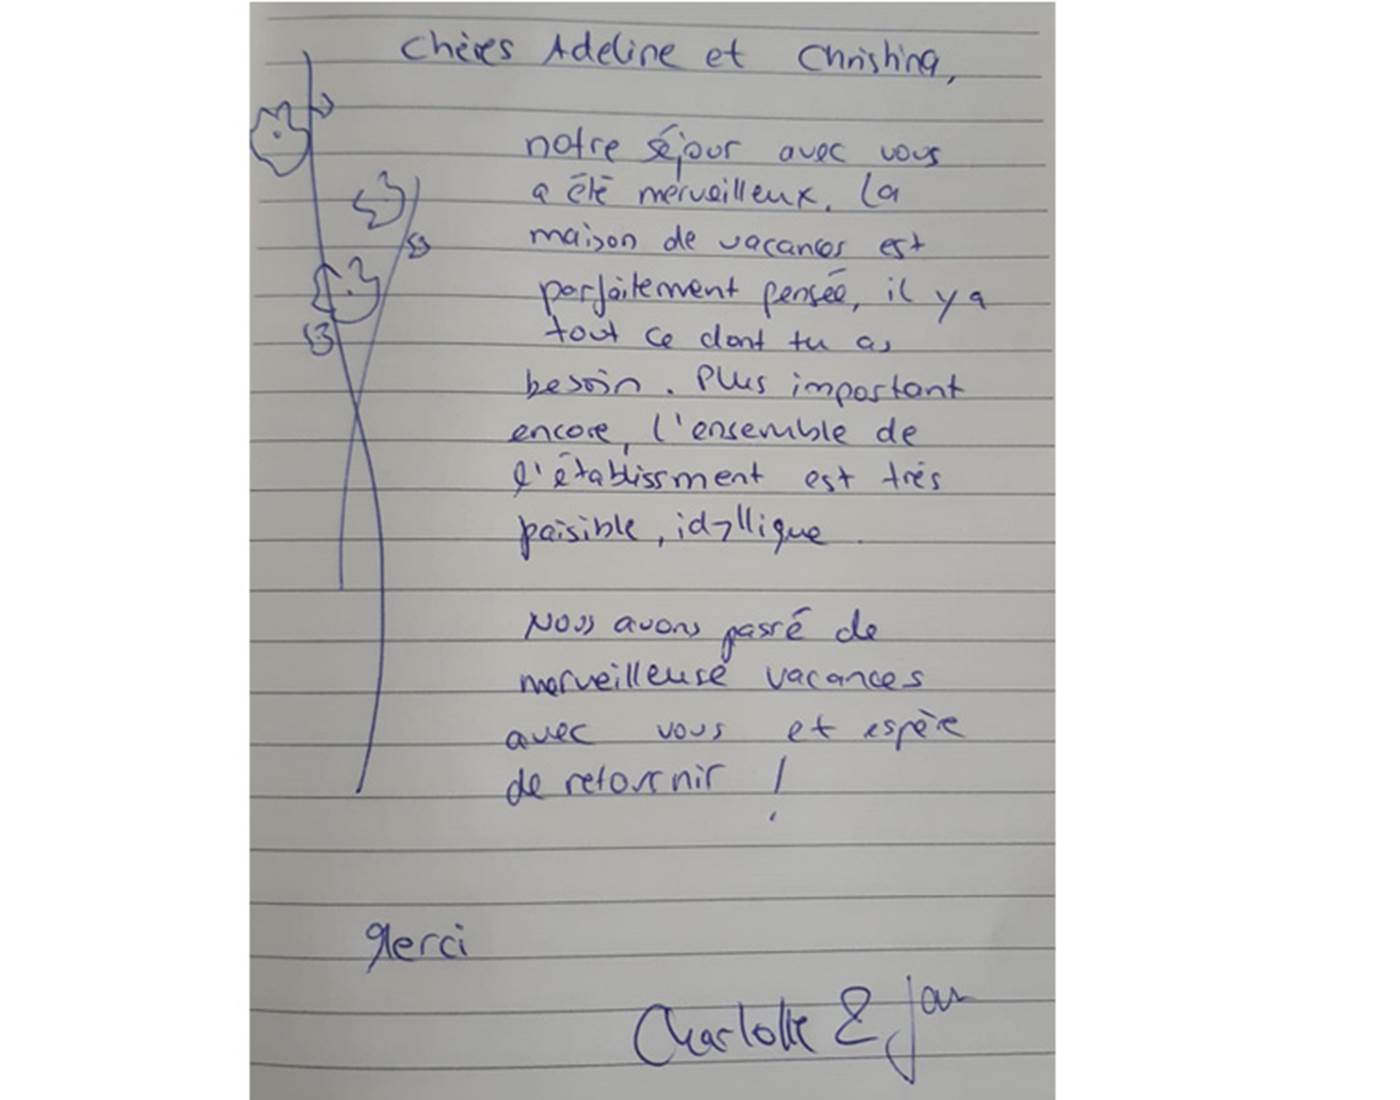 Chères Adeline et Christina,
notre séjour avec vous
a été merveilleux. La
maison de vacances est
parfaitement pensée, il y a
tout ce dont tu as
besoin. Plus important
encore, l'ensemble de
l'établissment est trés
paisible, idyllique.
Nous avons passé de
merveilleuse vacances
avec vous et espère
de retournir !
Merci
Charlotte & Jan